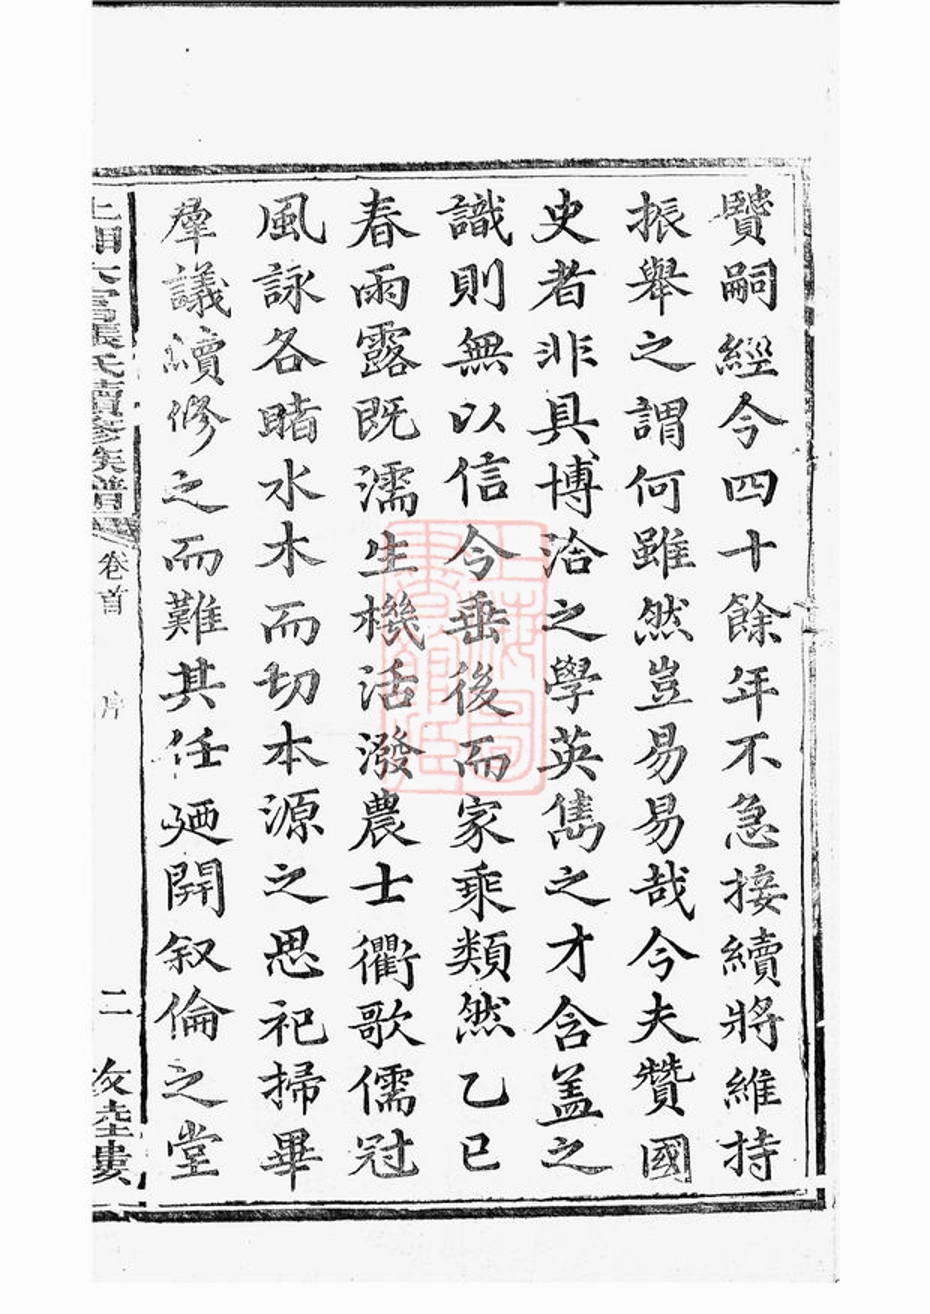 嗣經今四十餘年不急接續將維持
振舉之謂何雖然豈易易哉今夫贊國
史者非具博洽之學英儁之才含盖之
識則無以信今垂後而家乘類然乙巳
春雨露既濡生機活潑農士衢歌儒冠
風詠各睹水木而切本源之思祀掃畢
羣議續修之而難其任廼開叙倫之堂
上湘六官張氏續修族譜 卷首 序 二 敦睦